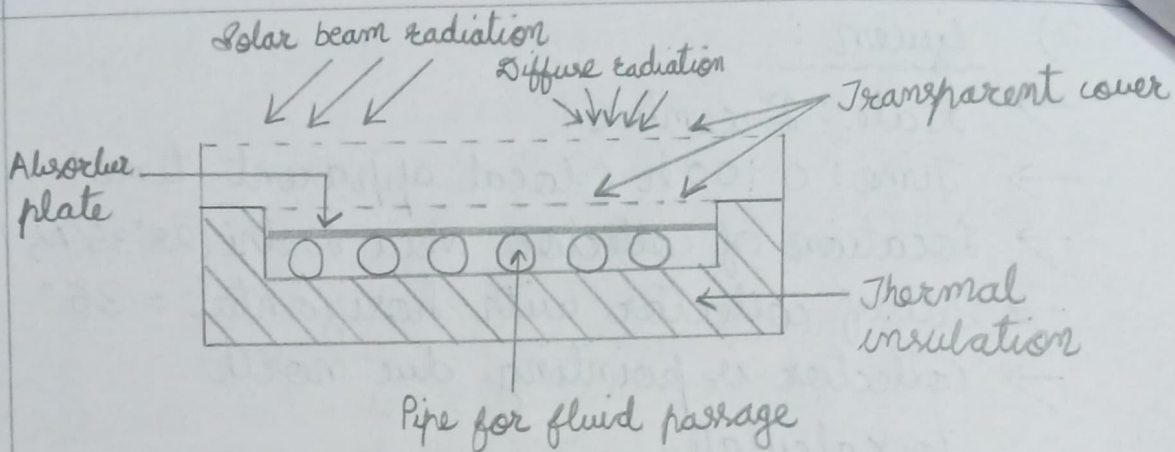 Solar beam radiation
Diffuse radiation
Transparent cover
Absorber
plate
Thermal
insulation
Pipe for fluid passage